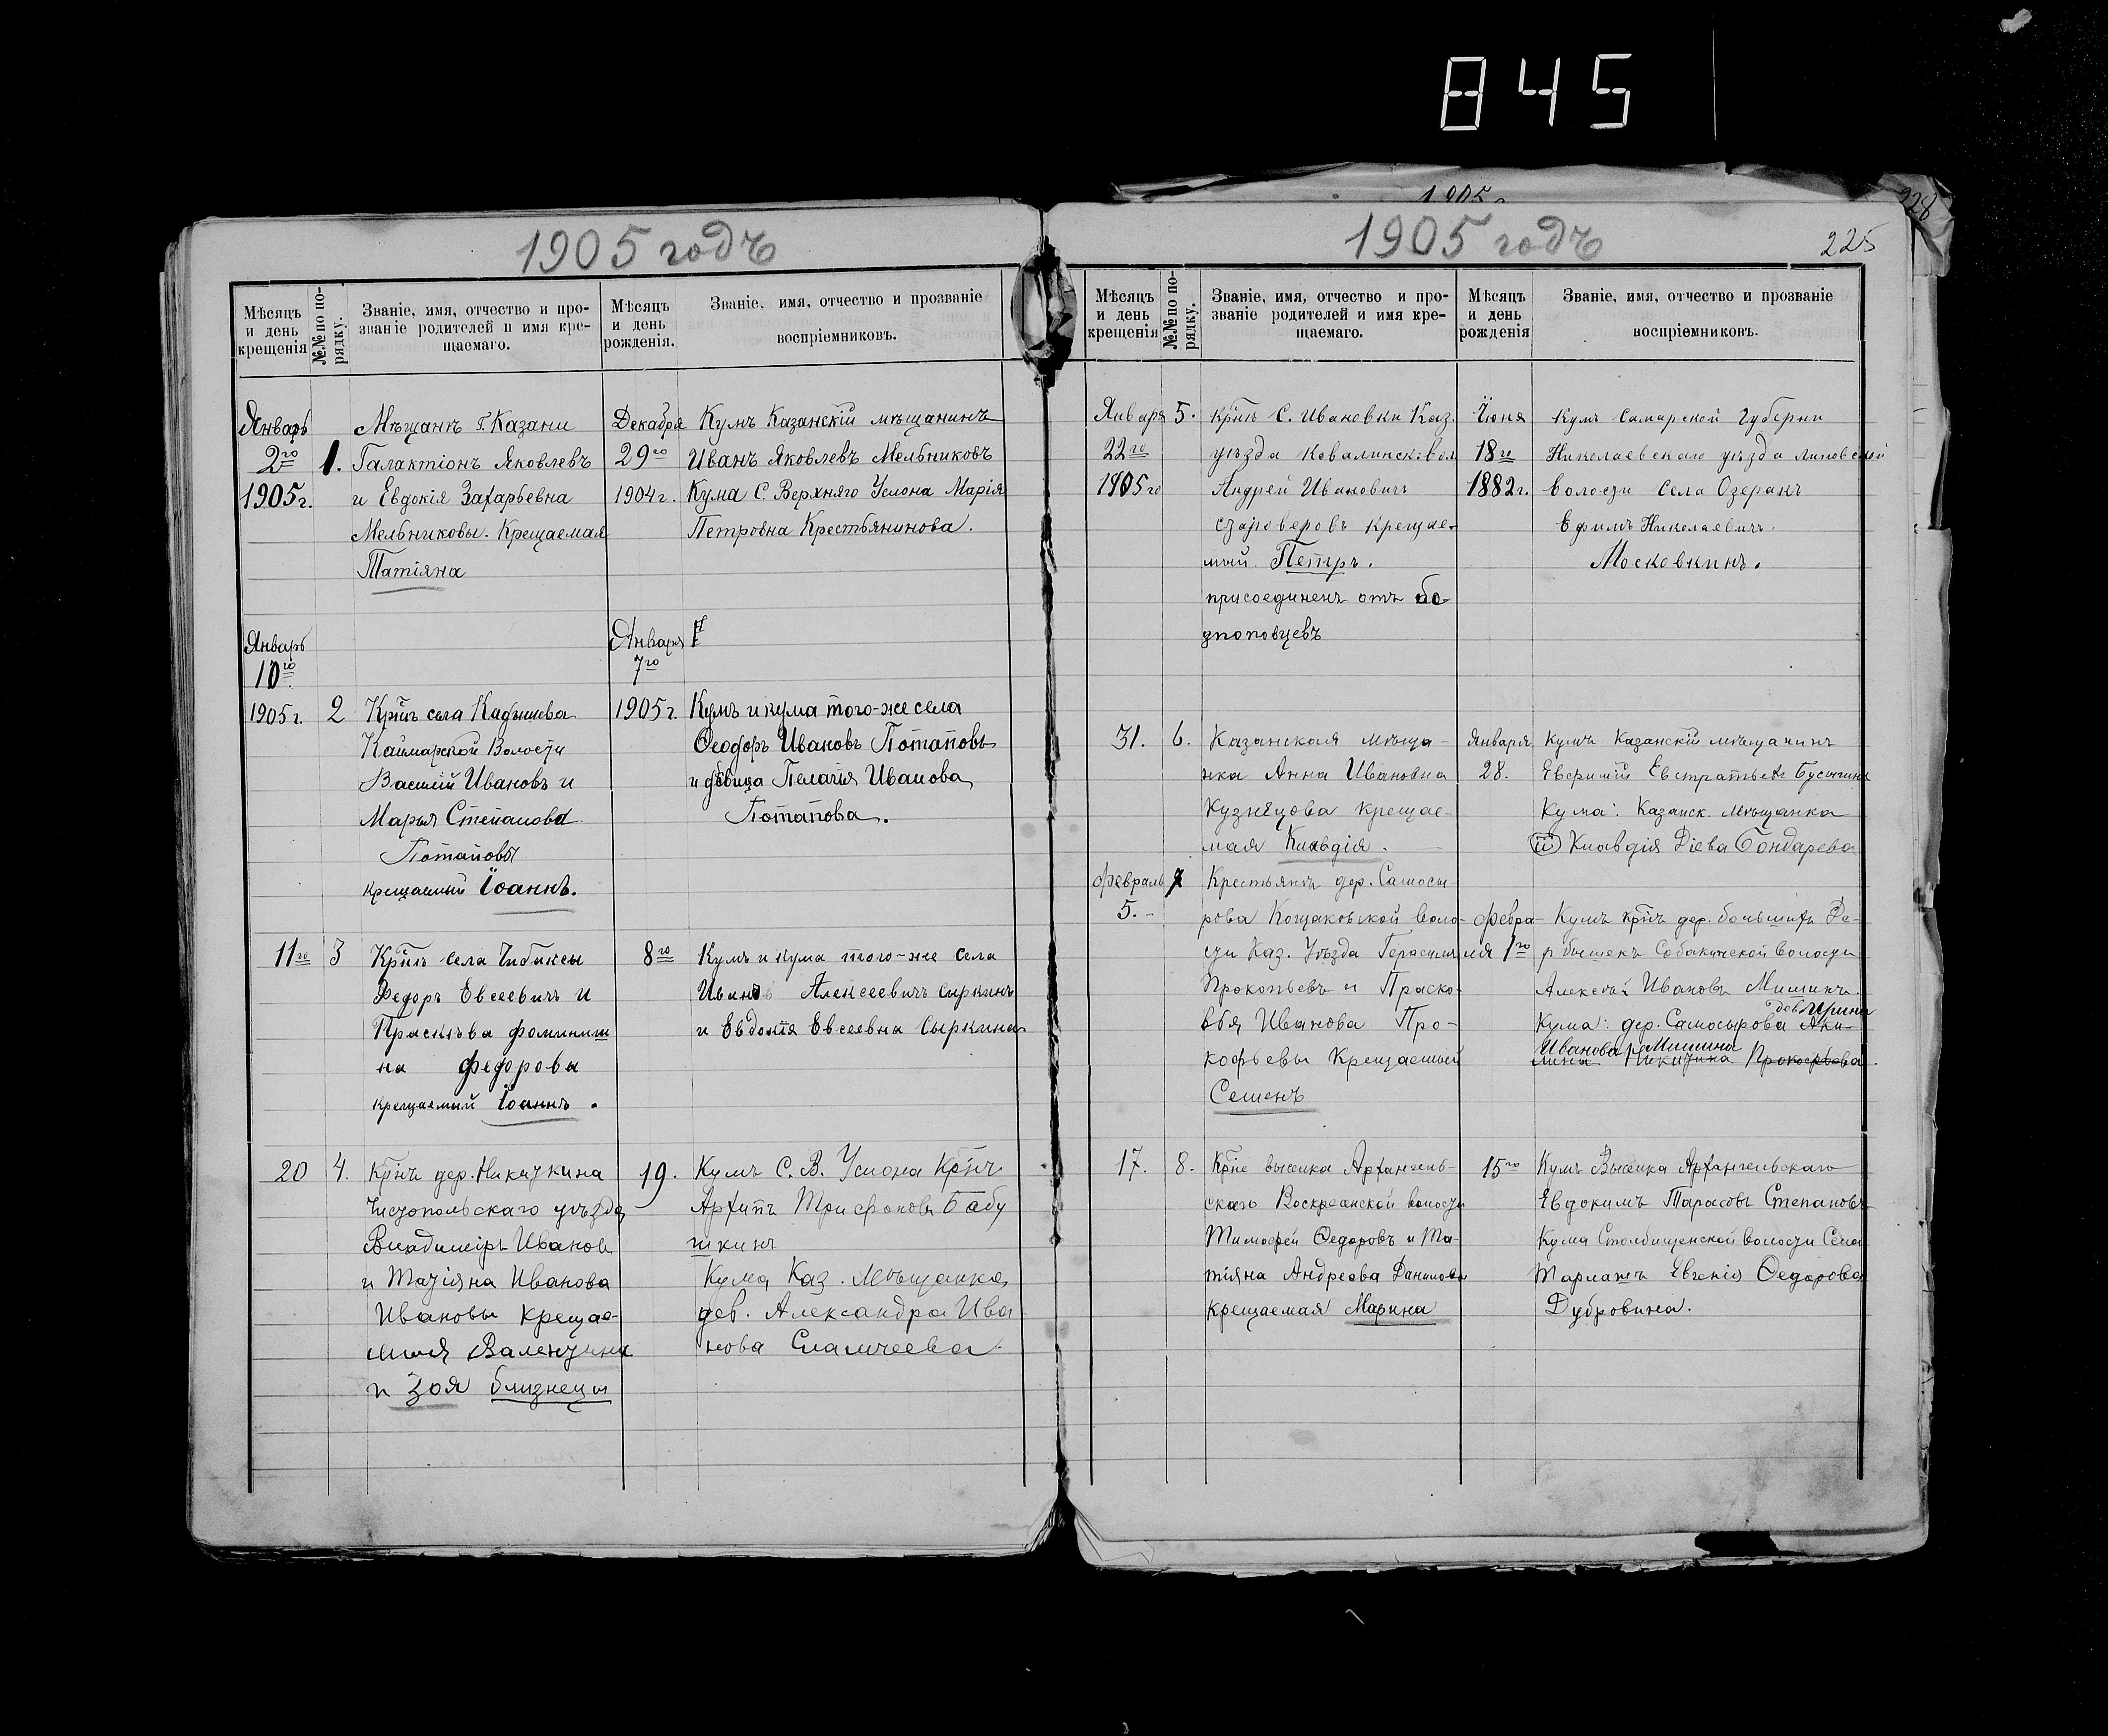 845
1905 г
228
1905 годъ
Мѣсяцъ и день крещенія
№№ по порядку.
Званіе, имя, отчество и прозваніе родителей и имя крещаемаго.
Мѣсяцъ и день рожденія.
Званіе, имя, отчество и прозваніе воспріемниковъ.
Январь
2го
1905г.
1.
Мѣщанъ г. Казани
Галактіонъ Яковлевъ
и Евдокія Захарьевна
Мельниковы. Крещаемая
Татіяна
Декабря
29го
1904г.
Кумъ Казанскій мѣщанинъ
Иванъ Яковлевъ Мельниковъ
Кума С. Верхняго Услона Марія
Петровна Крестьянинова.
Январь
10го
1905г.
2
Крн̃ъ села Кадышева
Каймарской Волости
Василій Ивановъ и
Марья Степанова
Потаповы
крещаемый Іоаннъ.
Января
7го
1905г.
Кумъ и кума того-же села
Ѳеодоръ Ивановъ Потаповъ
и дѣвица Пелагія Иванова
Потапова.
11го
3
Крн̃ъ села Чибаксы
Федоръ Евсеевичъ и
Прасклѣва
на Федоровы
крещаемый Іоаннъ.
8го
Кумъ и кума того-же села
Иванъ Алексеевичъ Сыркинъ
и Евдокія Евсеевна Сыркина
20
4.
Крн̃ъ дер. Никиткина
Чистопольскаго уѣзда
Владимеіръ Иванов
и Татіяна Иванова
Ивановы Крещае-
мыя Валентина
и Зоя близнецы
19.
Кумъ С. В. Услона Крн̃ъ
Архипъ Трифоновъ Бабу
шкинъ
Кума Каз. Мѣщанка
дев. Александра Ива
нова
1905 годъ
225
Мѣсяцъ и день крещенія
№№ по порядку.
Званіе, имя, отчество и прозваніе родителей и имя крещаемаго.
Мѣсяцъ и день рожденія
Званіе, имя, отчество и прозваніе воспріемниковъ.
Января
22го
1905го
5.
крн̃ъ С. Ивановки Каз.
уѣзда Ковалинск. вол
Андрей Ивановичъ
староверовъ крещае-
мый Петръ.
присоединенъ отъ бе
зпоповцевъ
Іюня
18го
1882г.
кумъ Самарской Губерни
Николаевскаго уѣзда Липовской
волости Села Озерокъ
Ефимъ Николаевичъ
Московкинъ.
31.
6.
Казанская мѣща-
нка Анна Ивановна
Кузнецова крещае-
мая Клавдія.
Января
28.
Кумъ Казанскій мѣщанинъ
Евфимій Евстратьевъ
Кума: Казанск. Мѣщанка
Клавдія Діева Бондарева
Февраль
5.-
7
Крестьянъ дер. Самосы
рова Кощаковской воло-
сти Каз. Уѣзда Герасим
Прокопьевъ и Праско-
вья Иванова Про-
кофьевы Крещаемый
Семенъ
Февра-
ля 1го
Кумъ крн̃ъ дер. большихъ Де-
рбышекъ Собакинской волости
Алексѣй Ивановъ Мишинъ.
дев. Ирина
Кума: дер. Самосырова Аки-
Иванова Мишина
лина Никитина Прокофьева.
17.
8.
Крн̃е выселка Архангель-
скаго Воскресанской волости
Тимофей Ѳедоровъ и Та-
тіяна Андреева Даниловы
крещаемая Марина
15го
Кумъ Выселка Архангельскаго
Евдокимъ Тарасовъ Степановъ
Кума Столбищенской волости Села
Тарлашъ Евгенія Ѳедорова
Дубровина.